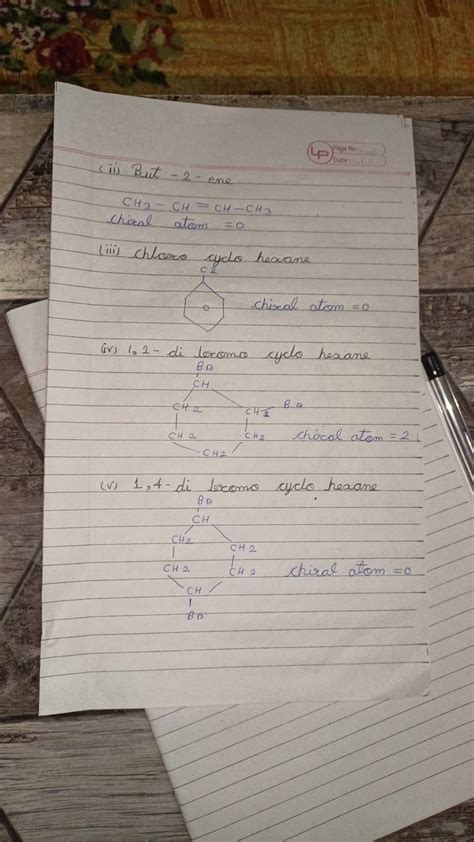 LP Page No.
Date / /
(ii) But - 2 - ene
CH3 - CH = CH - CH3
chiral atom = 0
(iii) chloro cyclo hexane
Cl
chiral atom = 0
(iv) 1,2 - di bromo cyclo hexane
Br
CH
CH2 CH2 Br
CH2 CH2 chiral atom = 2
CH2
(v) 1,4 - di bromo cyclo hexane
Br
CH
CH2 CH2
CH2 CH2 chiral atom = 0
CH
Br